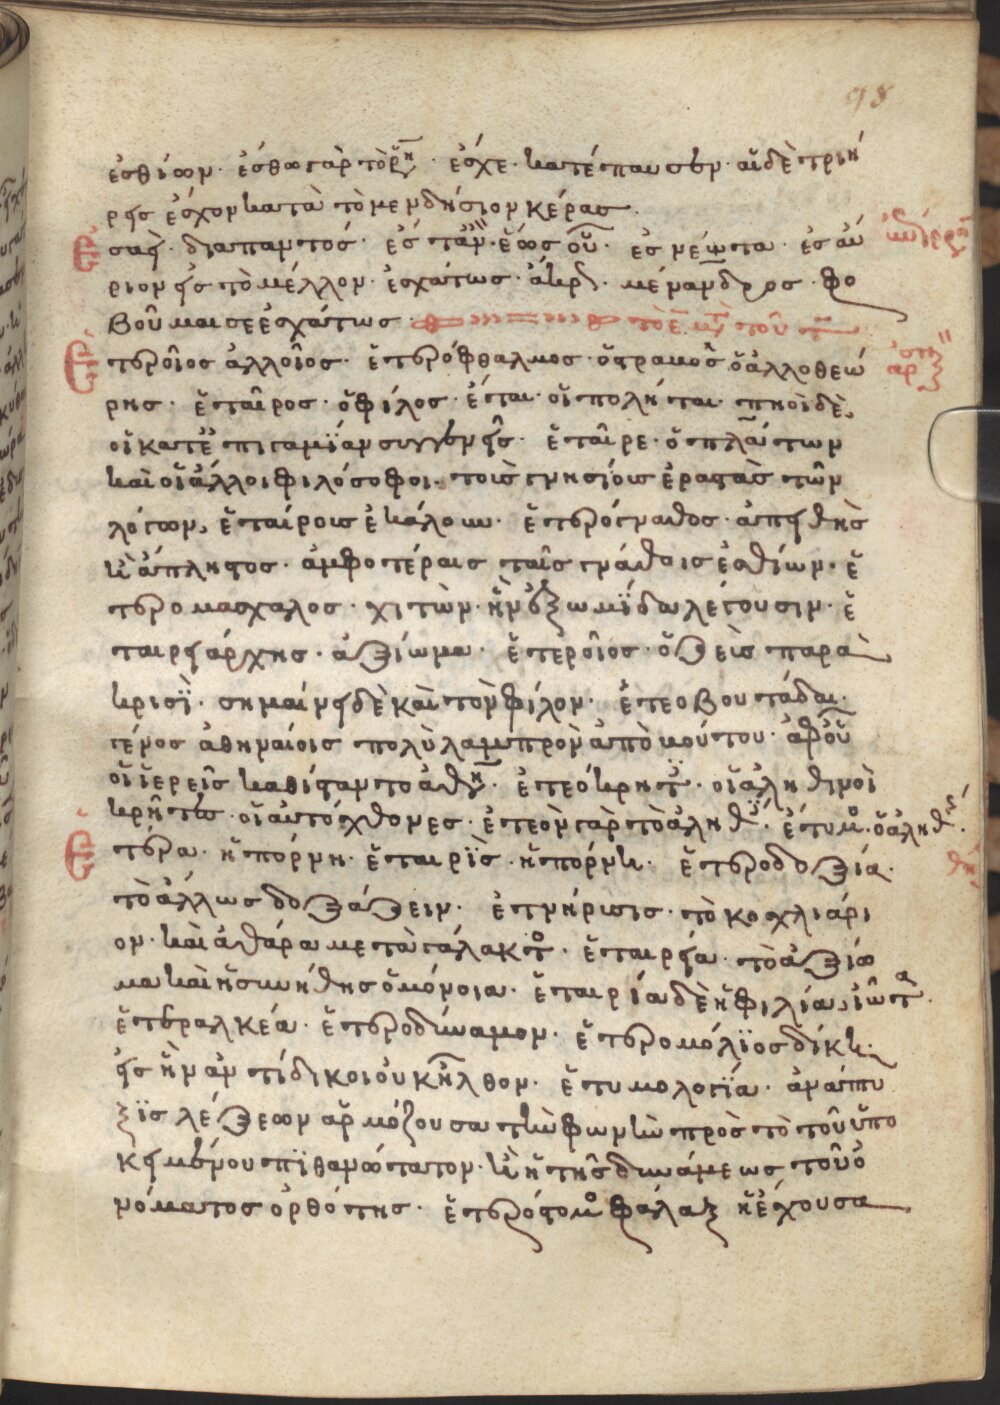 98
ἐσθίων· ἔσθω γὰρ τὸ ῥῆ· ἔσχε· κατέπαυσεν· αἱ δὲ τριή
ρεις ἔσχον κατὰ τὸ μενδήσιον κέρας.
σαεί· διαπαντός· ἐς τἄν· ἕως οὗ· ἐς νέωτα· ἐς αὔ
ριον εἰς τὸ μέλλον· ἐσχάτως· ἄκρως· μένανδρος· φο
βοῦμαι σε ἐσχάτως· τὸ ε μετὰ τοῦ τ
ἑτεροῖος ἀλλοῖος· ἑτερόφθαλμος· ὁ ἀλλοθεώ
ρης· ἑταῖρος· ὁ φίλος· ἔται· οἱ πολῖται· τινὲς δὲ
οἱ κατ' ἐπιγαμίαν συγγενεῖς· ἑταῖρε· ὁ πλάτων
καὶ οἱ ἄλλοι φιλόσοφοι· τοὺς γνησίους ἐραστὰς τῶν
λόγων, ἑταίρους ἐκάλουν· ἑτερόγναθος· ἀπειθὴς
κ ἄπληστος· ἀμφοτέραις ταῖς γνάθοις ἐσθίων· ἑ
τερομάσχαλος· χιτὼν· ἣν ἐξωμίδα λέγουσιν· ἑ
ταιρειάρχης· ἀξίωμα· ἑτεροῖος· ὀξεῖς παρὰ
κρισϊ· σημαίνει δὲ καὶ τὸν φίλον· ἐτεοβουτάδαι·
γένος ἀθηναίοις πολὺ λαμπρὸν ἀπὸ βούτου· ἀφ' οὗ
οἱ ἱερεῖς καθίσταντο ἀθην· ἐτεόκρητες· οἱ ἀληθινοὶ
κρῆτες· οἱ αὐτόχθονες· ἐτεὸν γὰρ τὸ ἀληθές· ἔτυμος· ὁ ἀληθής.
ἑτέρα· ἡ πόρνη· ἑταιρὶς· ἡ πόρνη· ἑτεροδοξία·
τὸ ἄλλως δοξάζειν· ἐτνήρυσις· τὸ κοχλιάρι
ον· καὶ ἀθάρα μετὰ γάλακτος· ἑταιρεία· τὸ ἀξίω
μα καὶ ἡ συνήθης ὁμόνοια· ἑταιρία δὲ ἡ φιλία, ἰῶτα.
ἑτεραλκέα· ἑτεροδύναμον· ἑτερομόλϊος δίκη·
εἰς ἣν ἀντίδικοι οὐκ ἦλθον· ἐτυμολογϊα· ἀνάπτυ
ξϊς λέξεων ἁρμόζουσα τὴν φωνὴν πρὸς τὸ τοῦ ὑπο
κειμένου πϊθανώτατον· κ ἡ τῆς δυνάμεως τοῦ ὀ
νόματος ὀρθότης· ἑτερόστομος φάλαξ ἡ ἔχουσα